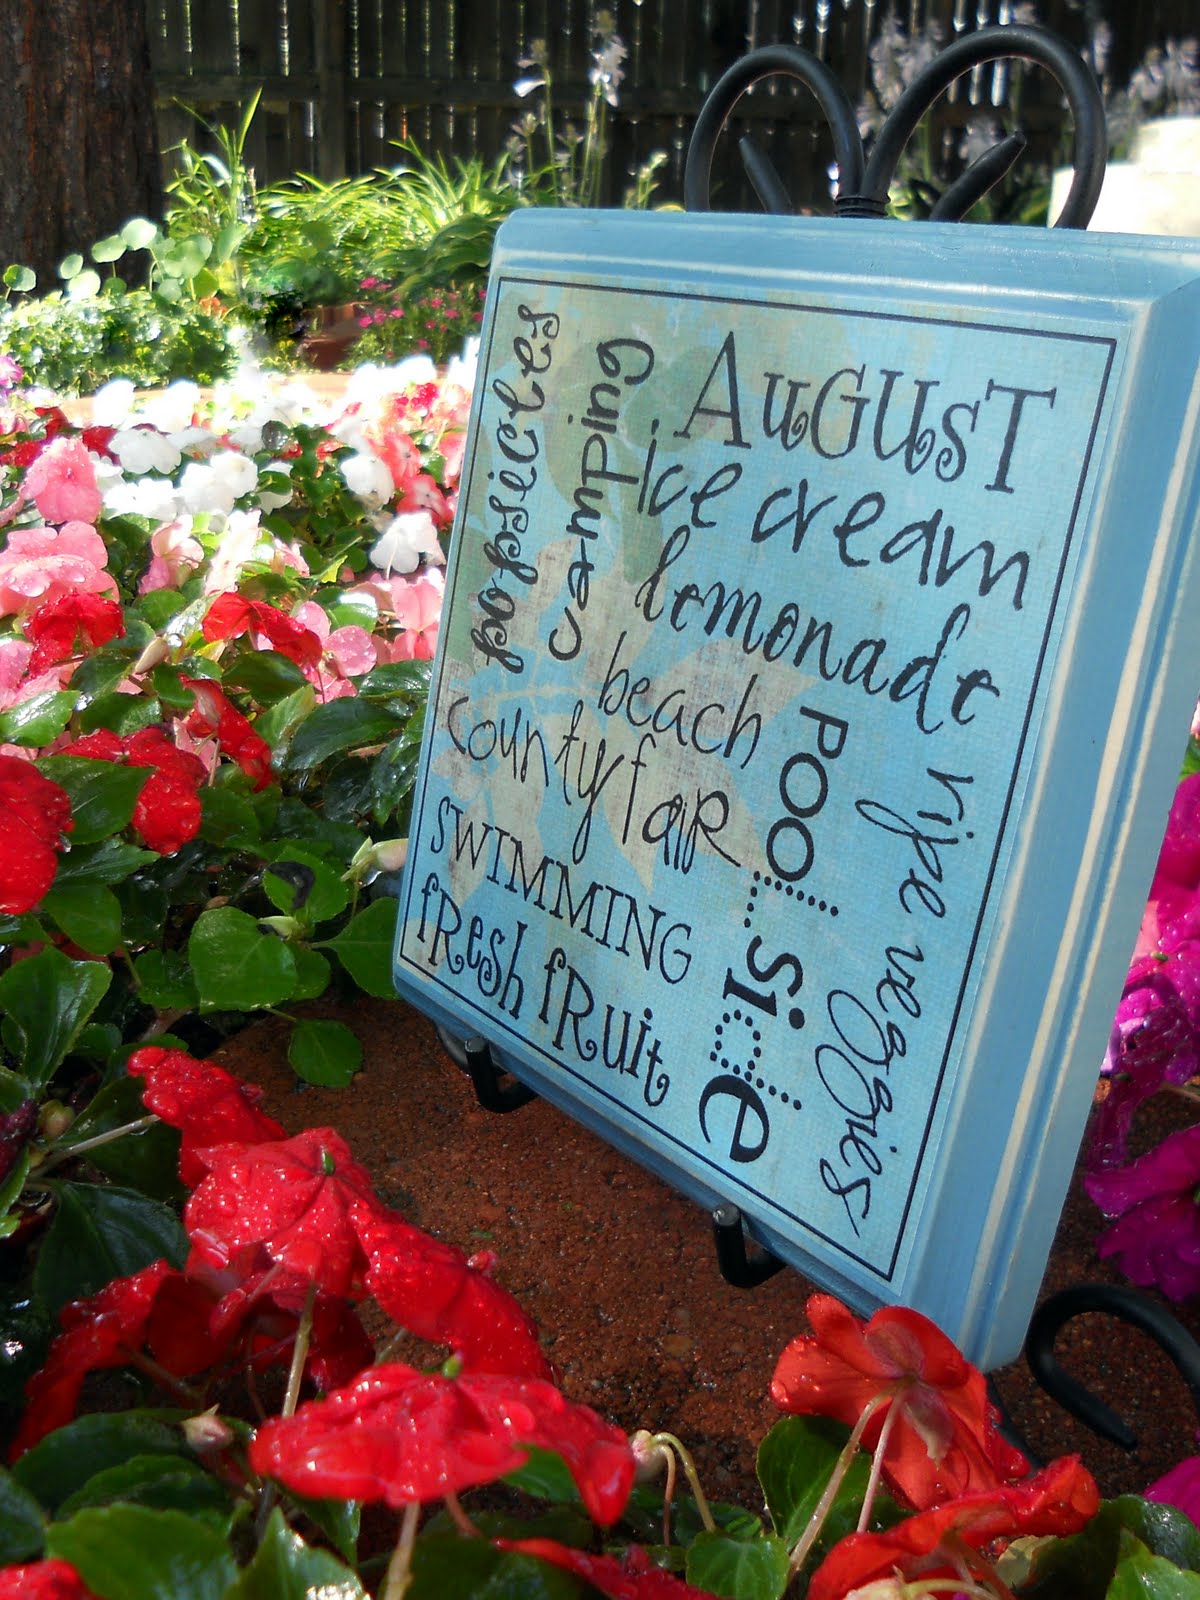 AuGUST
popsicles
camping
ice cream
lemonade
beach
county faiR
poolside
ripe veggies
SWIMMING
fResh fRuit